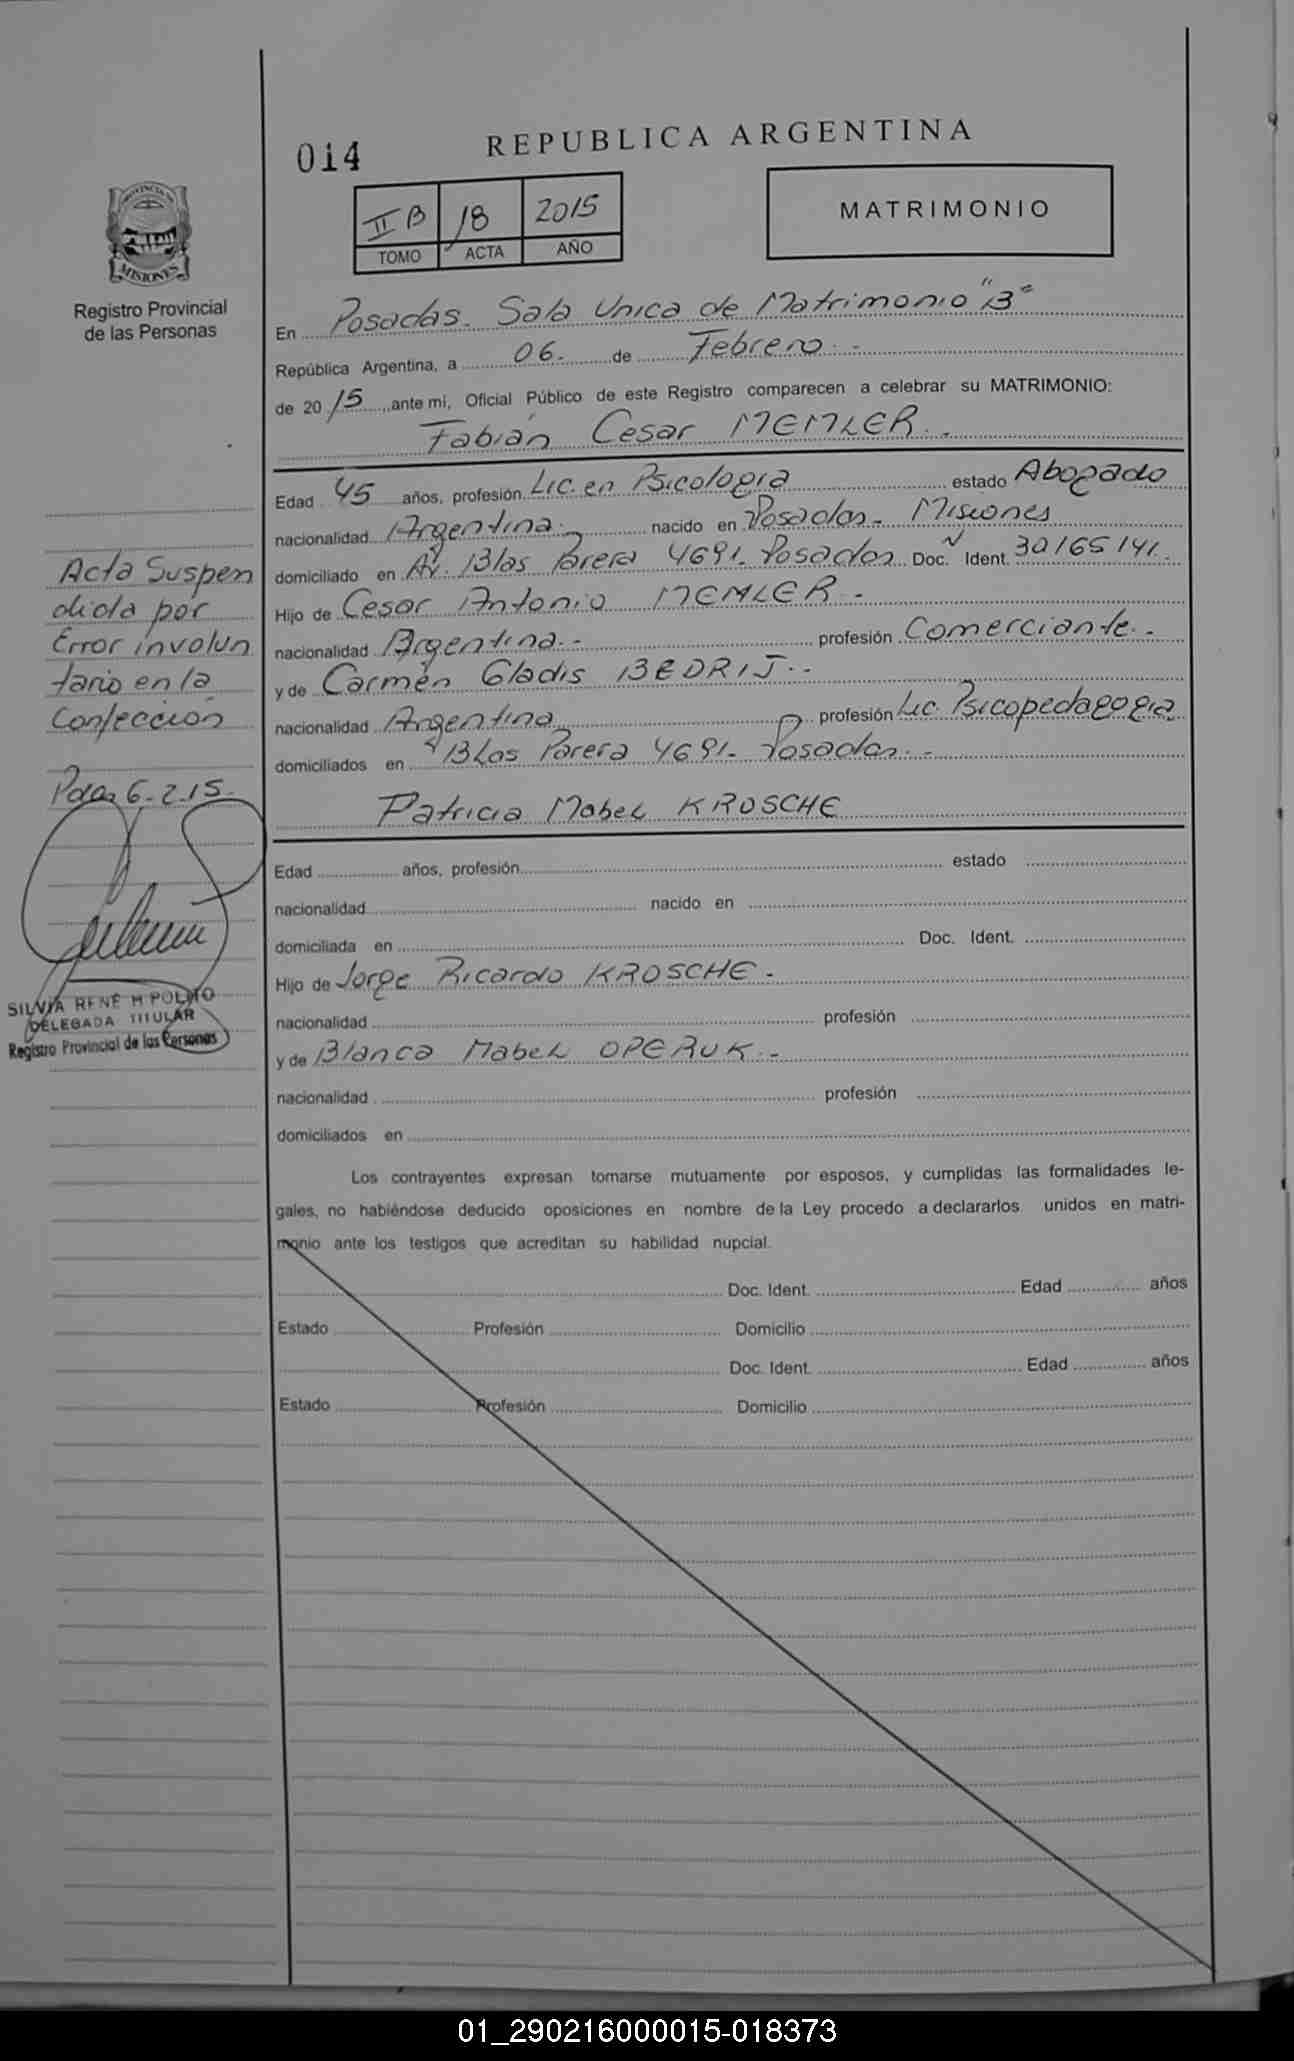 014
REPUBLICA ARGENTINA
II B 18 2015
TOMO ACTA AÑO
MATRIMONIO
PROVINCIA DE
MISIONES
Registro Provincial
de las Personas
En Posadas. Sala Unica de Matrimonio "B"
República Argentina, a 06. de Febrero.-
de 2015, ante mi, Oficial Público de este Registro comparecen a celebrar su MATRIMONIO:
Fabián Cesar MEMLER.-
Edad 45 años, profesión Lic. en Psicologia estado Abogado
nacionalidad Argentina.- nacido en Posadas- Misiones
domiciliado en Av. Blas Parera 4691- Posadas Doc. Ident. 30165141.
Hijo de Cesar Antonio MEMLER.-
nacionalidad Argentina.- profesión Comerciante.-
y de Carmen Gladis BEDRIJ.-
nacionalidad Argentina profesión Lic. Psicopedagogia
domiciliados en Blas Parera 4691- Posadas.-
Patricia Mabel KROSCHE
Edad años, profesión estado
nacionalidad nacido en
domiciliada en Doc. Ident.
Hijo de Jorge Ricardo KROSCHE.-
nacionalidad profesión
y de Blanca Mabel OPERUK.-
nacionalidad profesión
domiciliados en
Los contrayentes expresan tomarse mutuamente por esposos, y cumplidas las formalidades le-
gales, no habiéndose deducido oposiciones en nombre de la Ley procedo a declararlos unidos en matri-
monio ante los testigos que acreditan su habilidad nupcial.
Doc. Ident. Edad años
Estado Profesión Domicilio
Doc. Ident. Edad años
Estado Profesión Domicilio
Acta Suspen
dida por
Error involun
tario en la
Confección
Pdas 6-2-15-
SILVIA RENE M POLITO
DELEGADA TITULAR
Registro Provincial de las Personas
01_290216000015-018373